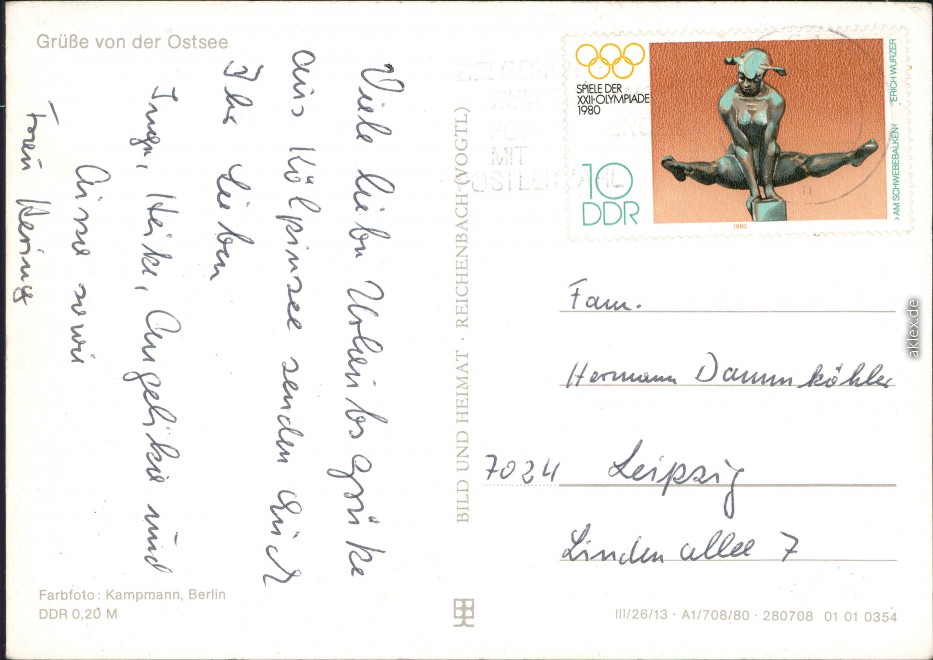 Grüße von der Ostsee
Viele liebe Urlaubsgrüße
aus Kölpinsee senden Euch
Ihr Lieben
Inga, Heike, Angelika und
sowie
Frau Hering
Farbfoto: Kampmann, Berlin
DDR 0,20 M
BILD UND HEIMAT · REICHENBACH (VOGTL)
SPIELE DER
XXII·OLYMPIADE
1980
10
DDR
›AM SCHWEBEBALKEN‹ ERICH WURZER
1980
MIT
POSTLEITZAHL
Fam.
Hermann Dammköhler
7024 Leipzig
Lindenallee 7
III/26/13 · A1/708/80 · 280708 01 01 0354
aklex.de